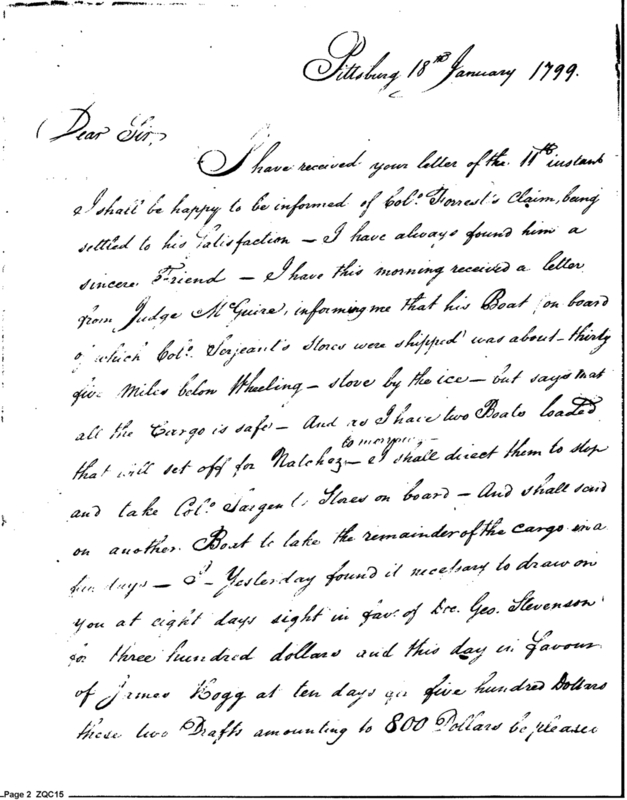 Pittsburg 18th January 1799.
Dear Sir,
I have received your letter of the 11th instant
I shall be happy to be informed of Colo. Forrest's Claim, being
settled to his Satisfaction — I have always found him a
sincere Friend — I have this morning received a letter
from Judge McGuire, informing me that his Boat (on board
of which Colo. Serjeant's Stores were shipped was about thirty
five Miles below Wheeling — stove by the ice — but says that
all the Cargo is safe — And as I have two Boats loaded
to morrow —
that will set off for Natchez — I shall direct them to stop
and take Colo. Sargent's Stores on board — And shall send
on another Boat to take the remainder of the cargo in a
few days — I — Yesterday found it necessary to draw on
you at eight days sight in fav. of Geo. Stevenson
for three hundred dollars and this day in favour
of James at ten days for five hundred Dollars
these two Drafts amounting to 800 Dollars be pleased
Page 2 ZQC15